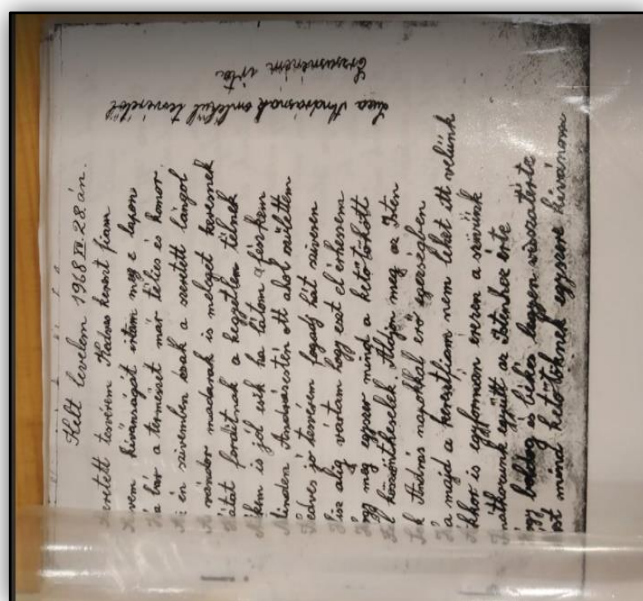 Kelt levelem 1968 XI 28 án.
Szeretett tesvérem Kedves kereszt fiam
Szivem kivánságát irtam meg e lapon
Ha bár a termeszet már télies és komor
Az én szivemben csak a szeretett lángol
A vándor madarak is meleget keresnek
Hátat forditnak a kegyetlem télnek
Nekem is jól esik ha látom a fészkem
Minden Andrásestén ott ahol születtem
Kedves jó tesvérem fogadj hát szivesen
Hisz alig vártam hogy ezt el érhessem
Hogy még egyszer mind a kető tököt
Fel köszönthesselek Áldjon meg az Isten
Sok András napokkal erő egeszségben
Ha majd a keresztfiam nem lehet itt velünk
Akkor is egyformán érezen a szivünk
Imátkozunk együtt az Istenhez érte
Hogy boldog és üdes legyen visszatérte
Ezt mind kető töknek egyszerre kivánom
Luca Andrásnak emlékül tesverétöl
irta